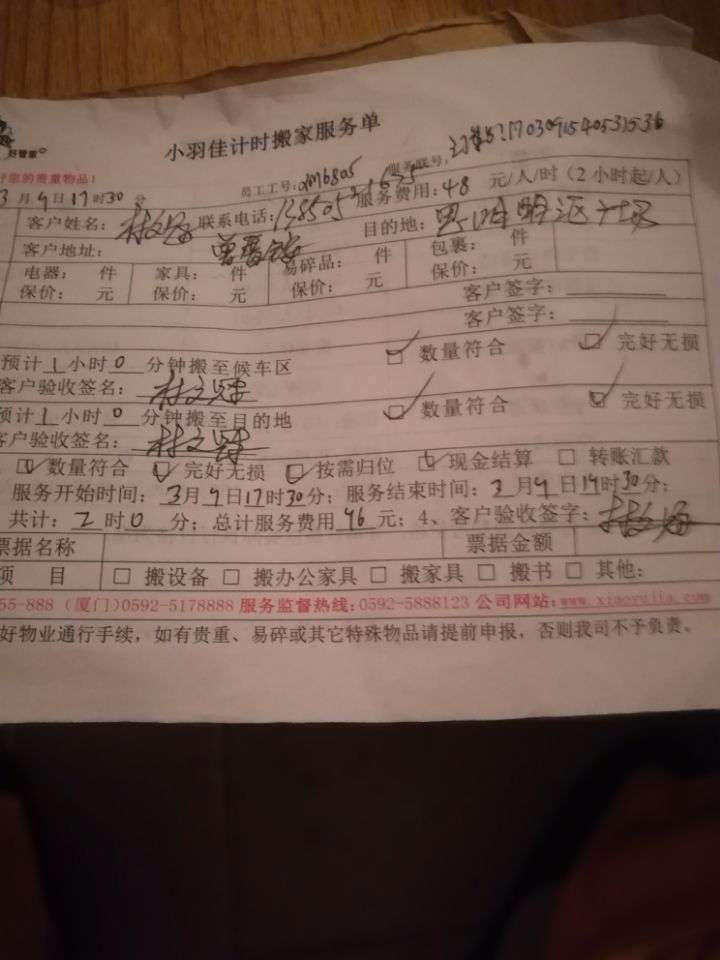 好管家
小羽佳计时搬家服务单
好您的贵重物品！
订单号:1703091540531536
3月9日17时30分 员工工号: 服务联号:
客户姓名: 联系电话: 服务费用:48元/人/时(2小时起/人)
客户地址: 目的地:
电器: 件 家具: 件 易碎品: 件 包裹: 件
保价: 元 保价: 元 保价: 元 保价: 元
客户签字:
客户签字:
预计1小时0分钟搬至候车区 数量符合 完好无损
客户验收签名:
预计1小时0分钟搬至目的地 数量符合 完好无损
客户验收签名:
数量符合 完好无损 按需归位 现金结算 转账汇款
服务开始时间:3月9日17时30分; 服务结束时间:3月9日19时30分;
共计:2时0分; 总计服务费用96元; 4、客户验收签字:
票据名称 票据金额
项目 搬设备 搬办公家具 搬家具 搬书 其他:
55-888 (厦门)0592-5178888 服务监督热线:0592-5888123 公司网站:www.xiaoyujia.com
好物业通行手续，如有贵重、易碎或其它特殊物品请提前申报，否则我司不予负责。